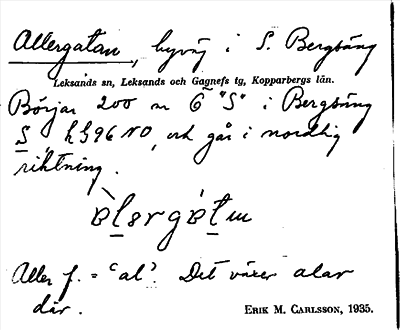 Allergatan, byväg i S. Bergsäng
Leksands sn, Leksands och Gagnefs tg, Kopparbergs län.
Börjar 200 m ö "S" i Bergsäng
S, h 596 NO, och går i nordlig
riktning.
Aller f. = 'al'. Det växer alar
där.
ERIK M. CARLSSON, 1935.